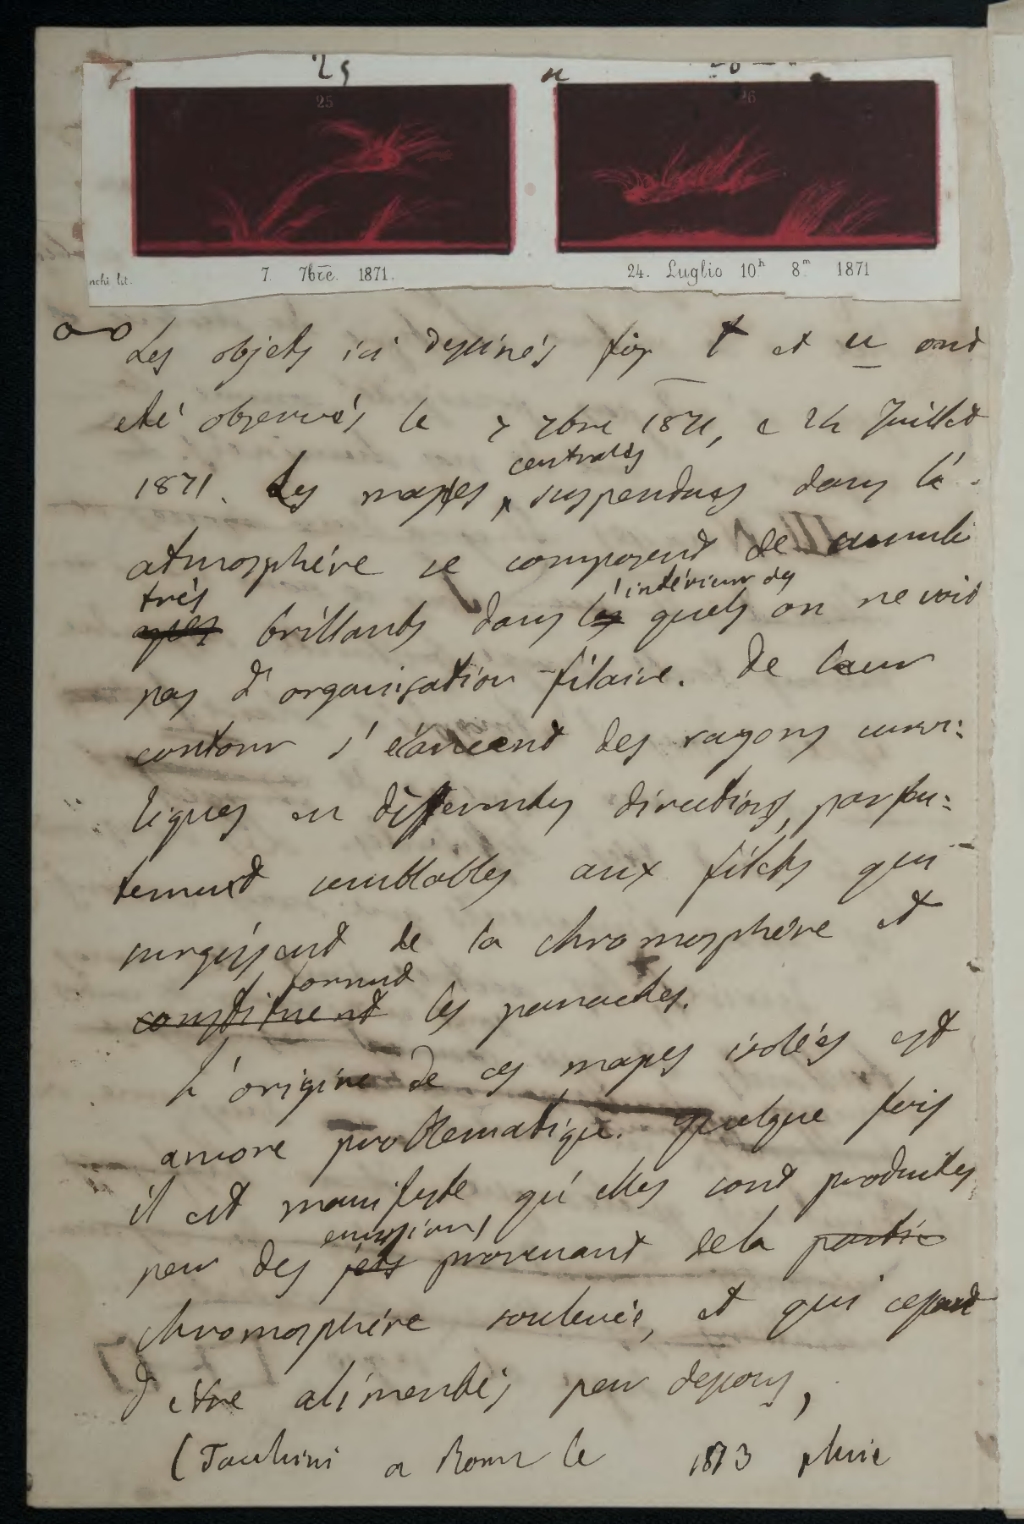 25 u
25 26
nchi lit. 7. 7bre. 1871. 24. Luglio 10h 8m 1871
Les objets ici dessinés fig t et u ont
été observés le 7 7bre 1871, e 24 Juillet
centrales
1871. Les masses suspendues dans l'a-
atmosphère se composent de cumuli
très l'intérieur des
brillants dans les quels on ne voit
pas d'organisation filaire. De leur
contour s'élancent des rayons curvi:
lignes en differentes directions, parfai:
tement semblables aux filets qui
surgissent de la chromosphère et
forment
constituent les panaches.
L'origine de ces masses isolées est
encore problematique. quelque fois
il est manifeste, qu'elles sont produites
emissions,
par des jets provenant de la partie
chromosphère soulevée, et qui cessent
d'être alimentés par dessous,
(Tacchini a Rome le 1873 pluie